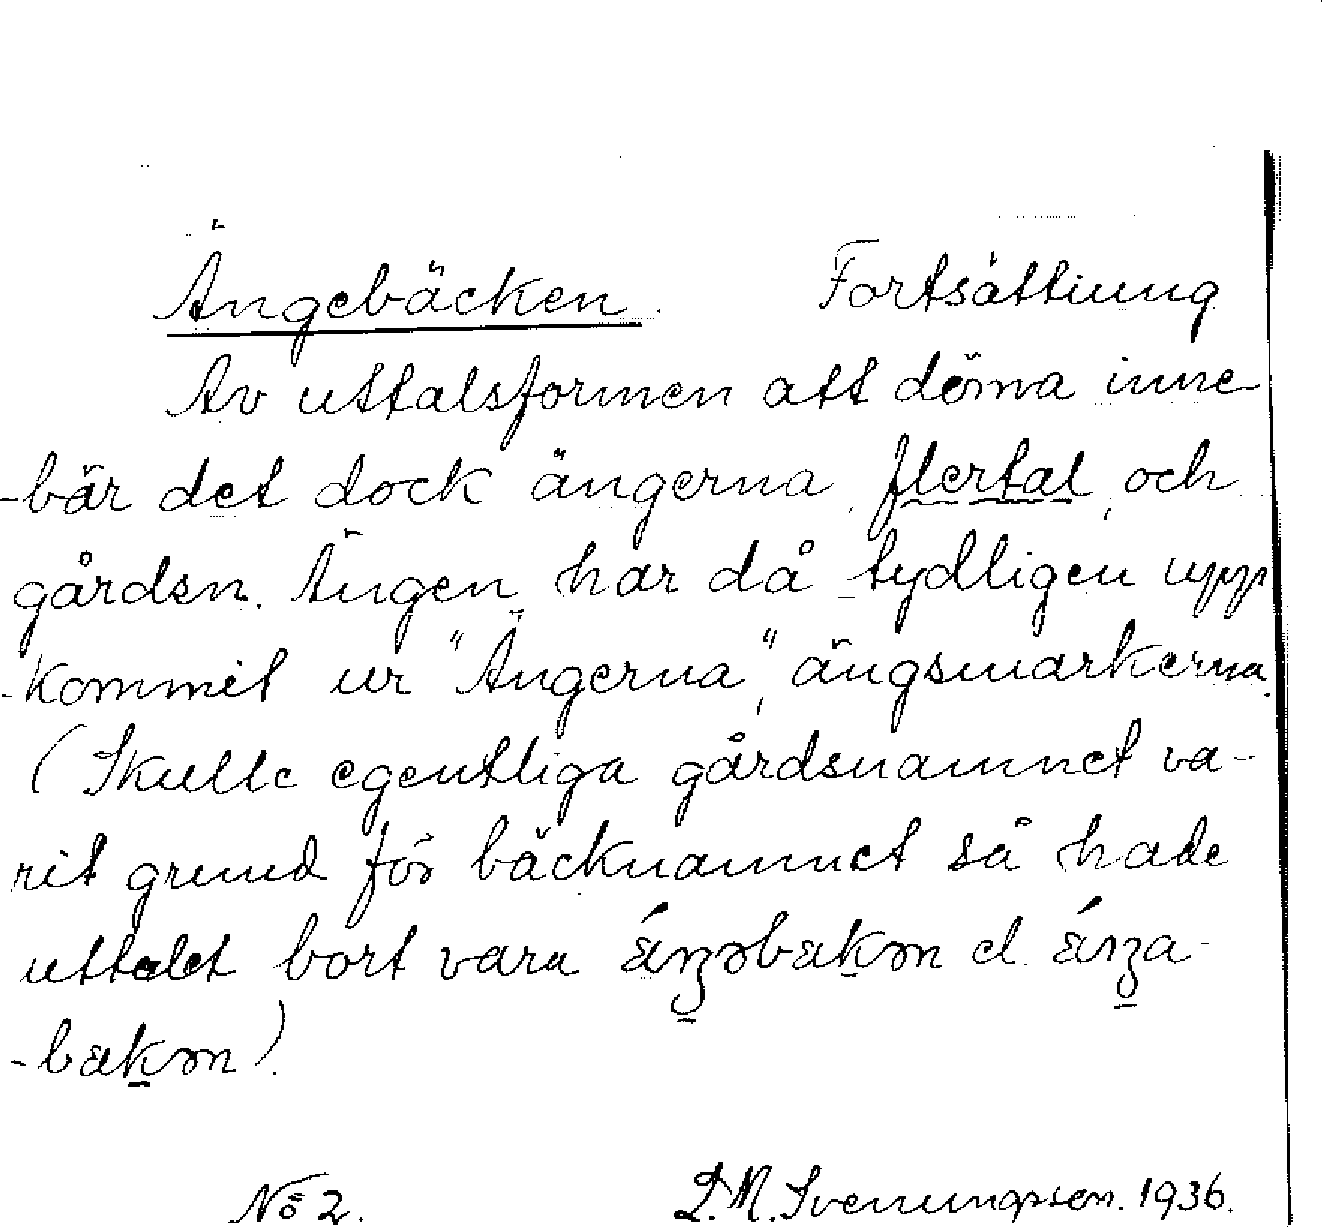 Ängebäcken. Fortsättning
Av uttalsformen att döma inne-
-bär det dock ängerna, flertal, och
gårdsn. Ängen har då tydligen upp
-kommit ur "Ängerna", ängsmarkerna.
(Skulle egentliga gårdsnamnet va-
rit grund för bäcknamnet så hade
uttalet bort vara el.
No 2. Svenungsson. 1936.